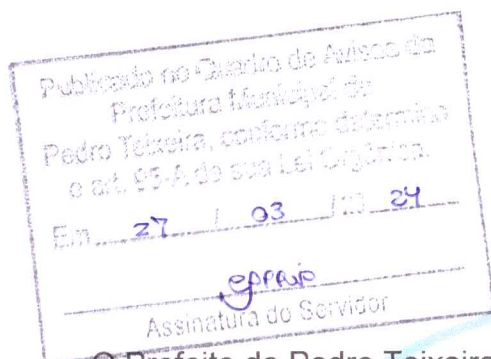 Publicado no Quadro de Avisos da
Prefeitura Municipal de
Pedro Teixeira, conforme determina
o art. 95-A de sua Lei Orgânica.
Em 27 / 03 / 20 24
Assinatura do Servidor
O Prefeito de Pedro Teixeira